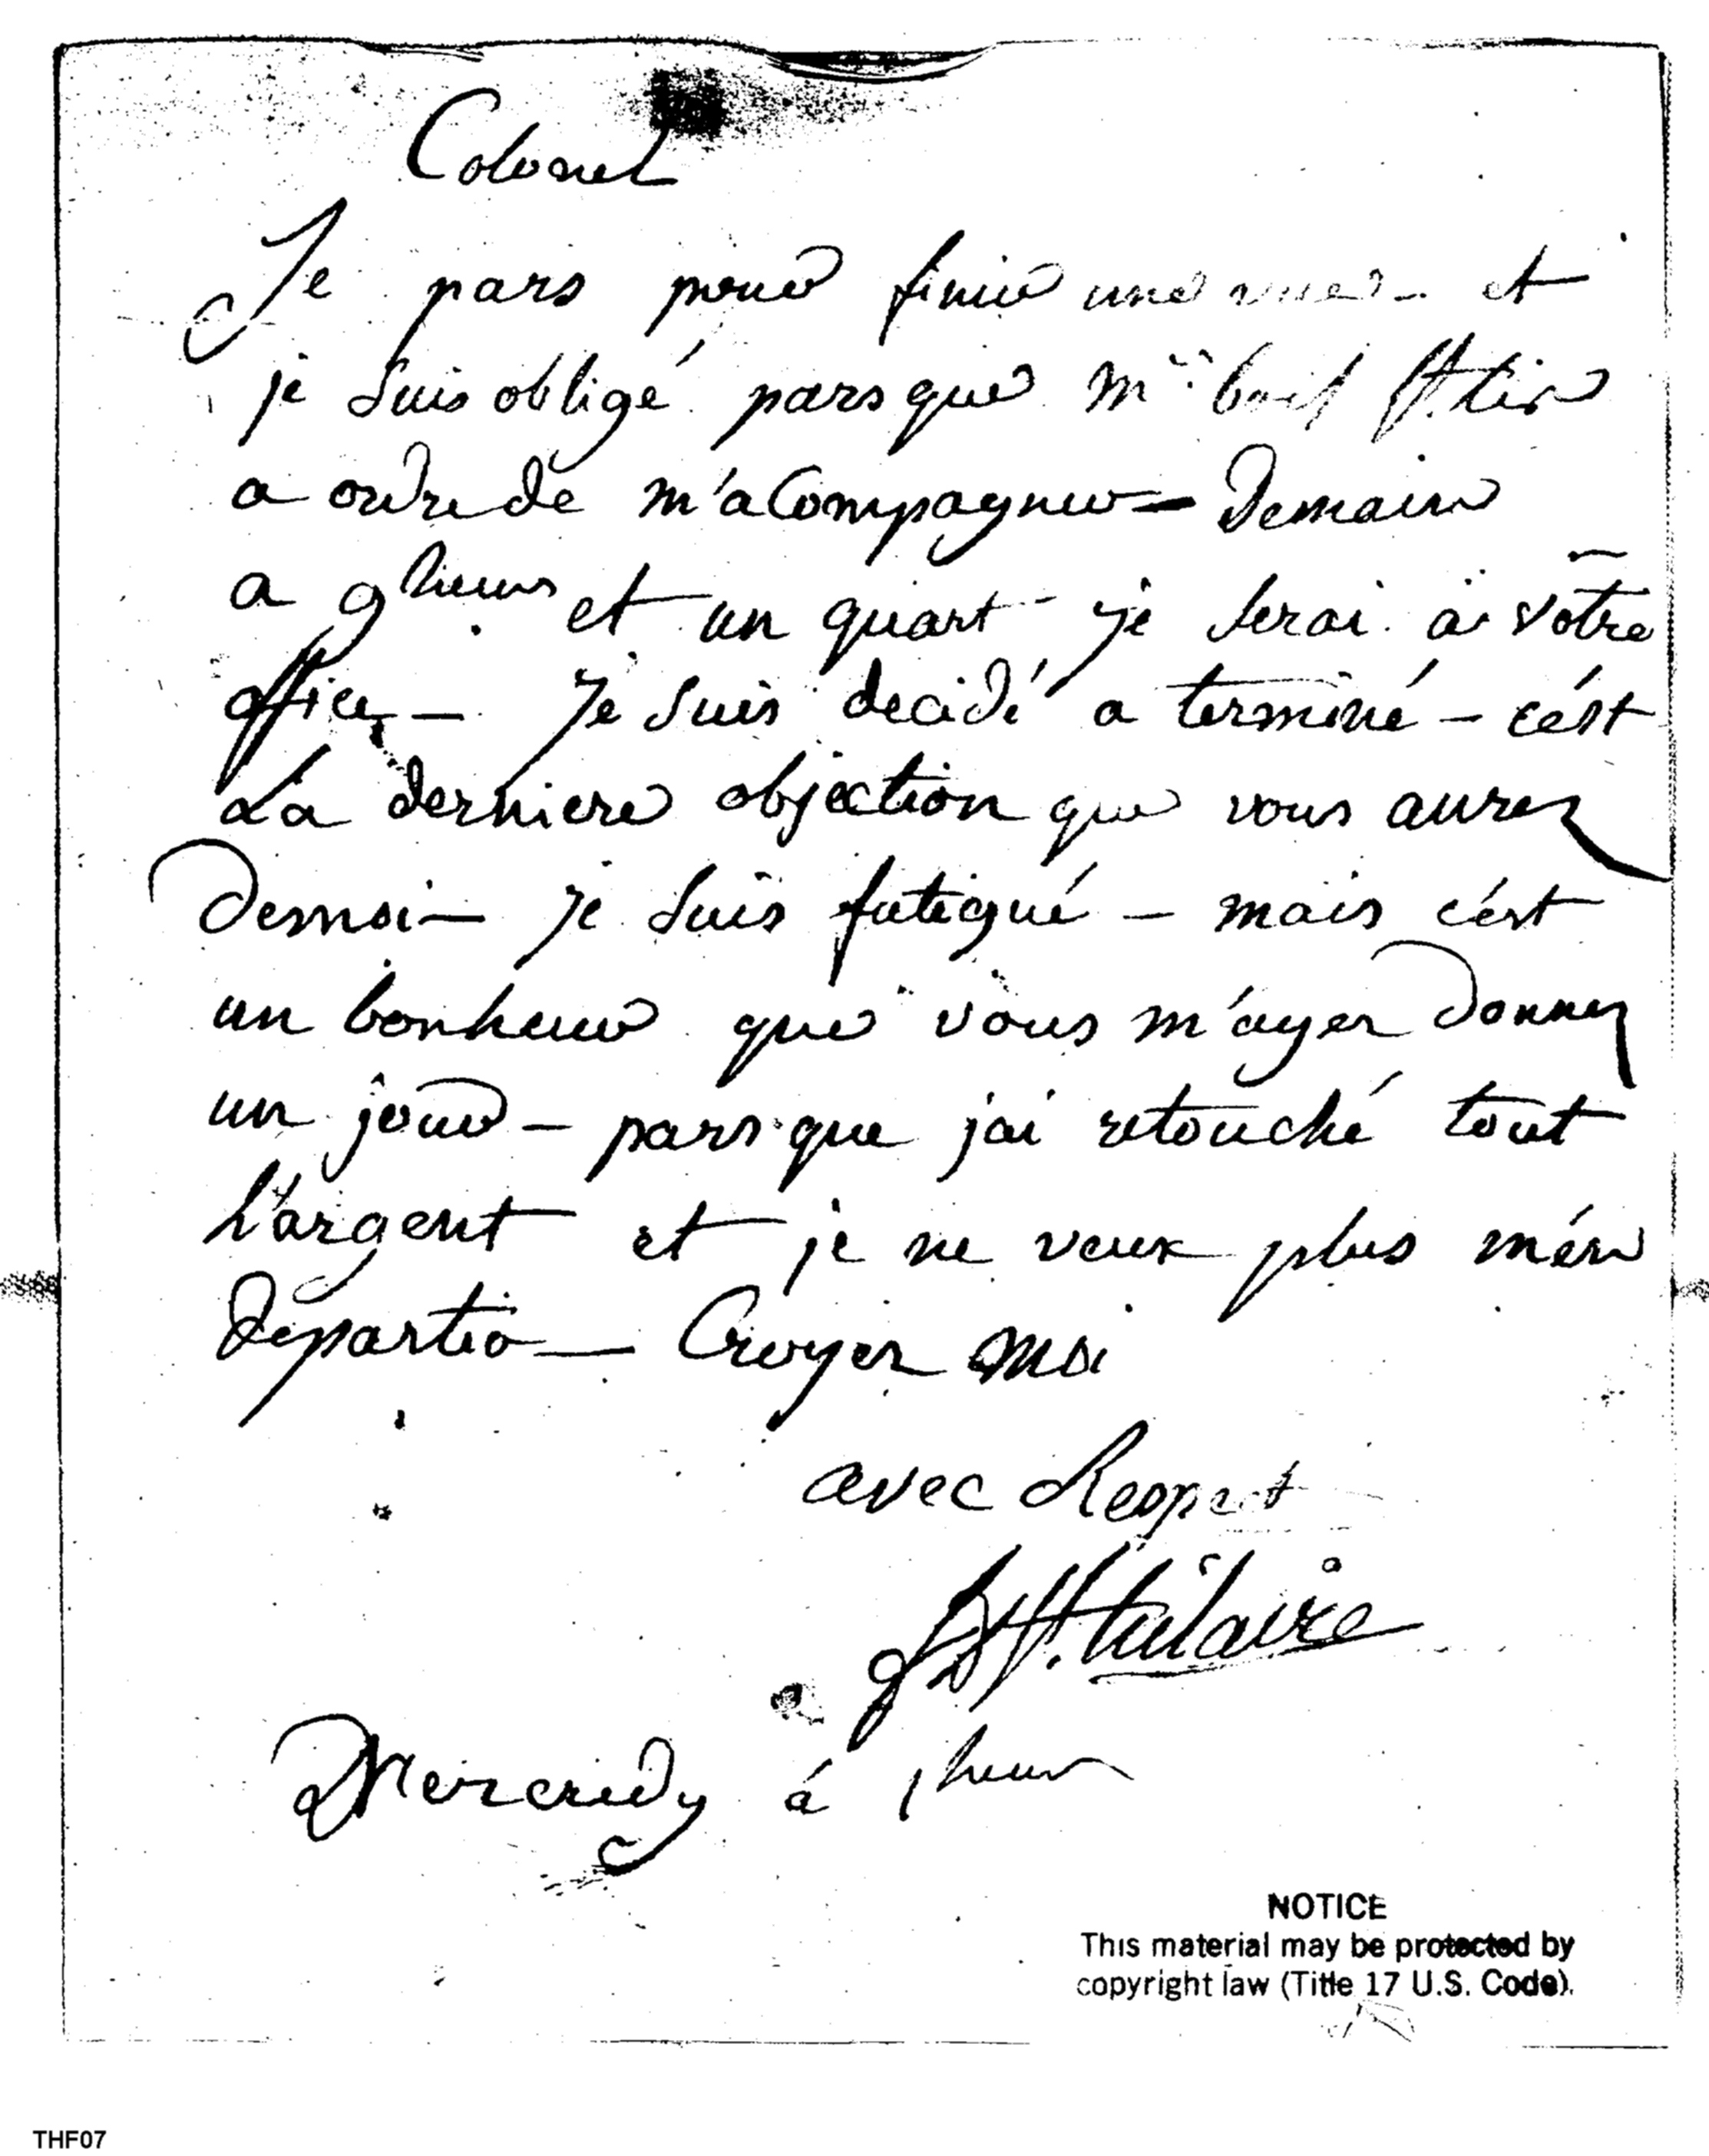 Colonel
Je pars pour finir une vue - et
je suis obligé parsque Mr
a ordre de m'a Compagner - Demain
a 9 heures et un quart - je serai à votre
office - Je suis decidé a terminé - c'ést
La derniere objection que vous aurez
Demoi - je suis fatigué - mais c'ést
un bonheur que vous m'ayez Donnez
un jour - parsque j'ai retouché tout
L'argent et je ne veux plus m'én
departir - Croyez moi
avec Respect
St. hilaire
Mercredy á 1 heure
NOTICE
This material may be protected by
copyright law (Title 17 U.S. Code).
THF07